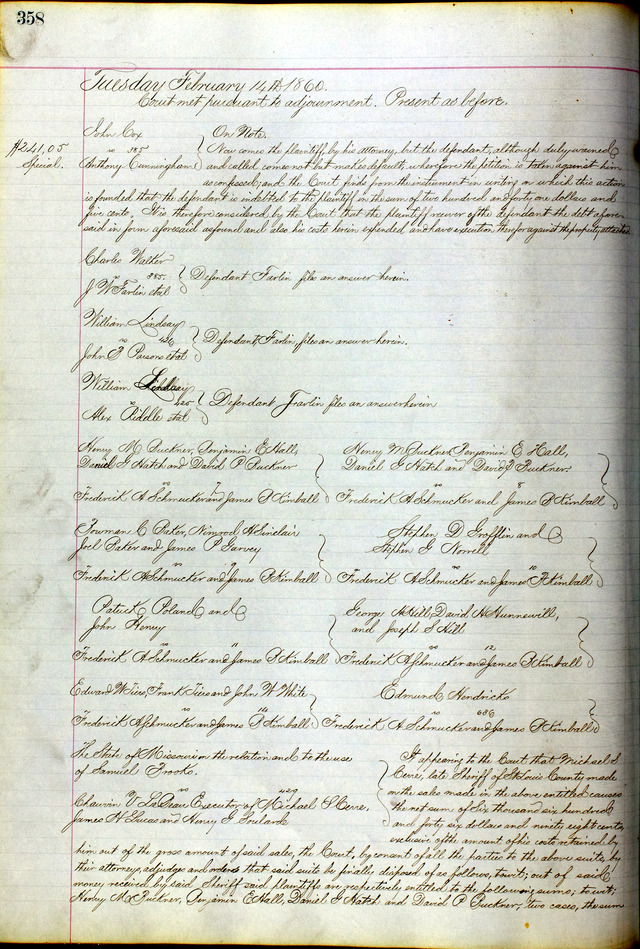 358
Tuesday February 14th 1860.
Court met pursuant to adjournment. Present as before.
John Cox On Note.
$241,05 vs 385 Now comes the plaintiff by his attorney, but the defendant, although duly warned
Special. Anthony Cunningham and called comes not but makes default, wherefore the petition is taken against him
as confessed; and the Court finds from the instrument in writing on which this action
is founded that the defendant is indebted to the plaintiff in the sum of two hundred and forty one dollars and
five cents. It is therefore considered by the Court that the plaintiff recover of the defendant the debt afore
said in form aforesaid as found and also his costs herein expended and have execution therefor against the property attached
Charles Walker
vs 385. Defendant Farlin files an answer herein.
J. W Farlin et al
William Lindsay
vs Defendant, Farlin, files an answer herein.
John Parsons et al
William Lindsay
vs Defendant Farlin files an answer herein
Alex Riddle et al
Henry M. Buckner, Benjamin E. Hall, Henry M. Buckner, Benjamin E. Hall,
Daniel G Hatch and David P Buckner Daniel G Hatch and David P Buckner.
vs 7 vs 8
Frederick A Schmucker and James P Kimball Frederick A Schmucker and James P Kimball
Bowman C Baker, Nimrod H Sinclair Stephen D Grofflin and
Joel Baker and James P Garvey Stephen G Norrell
vs 9 vs 10
Frederick A Schmucker and James P Kimball Frederick A Schmucker and James P Kimball
Patrick Poland and George A Hill, David H Hunnewill,
John Henry and Joseph S Hill
vs 11 vs 12
Frederick A Schmucker and James P Kimball Frederick A Schmucker and James P Kimball
Edward W Tiers, Frank Tiers and John W White Edmund Hendricks
vs 114 vs 686
Frederick A Schmucker and James P Kimball Frederick A Schmucker and James P Kimball
The State of Missouri on the relation and to the use It appearing to the Court that Michael S.
of Samuel Brooks. Cerre, late Sheriff of St Louis County, made
vs on the sales made in the above entitled causes
Chauvin V LeBeau Executor of Michael S Cerre, the net sum of Six thousand six hundred
James H Lucas and Henry G Soulard and forty six dollars and ninety eight cents,
exclusive of the amount of his costs retained by
him out of the gross amount of said sales, the Court, by consent of all the parties to the above suits, by
their attorneys, adjudge and orders that said suits be finally disposed of as follows, to wit; out of said
money received by said Sheriff said plaintiffs are respectively entitled to the following sums; to wit;
Henry M Buckner, Benjamin E Hall, Daniel G Hatch and David P Buckner, two cases, the sum